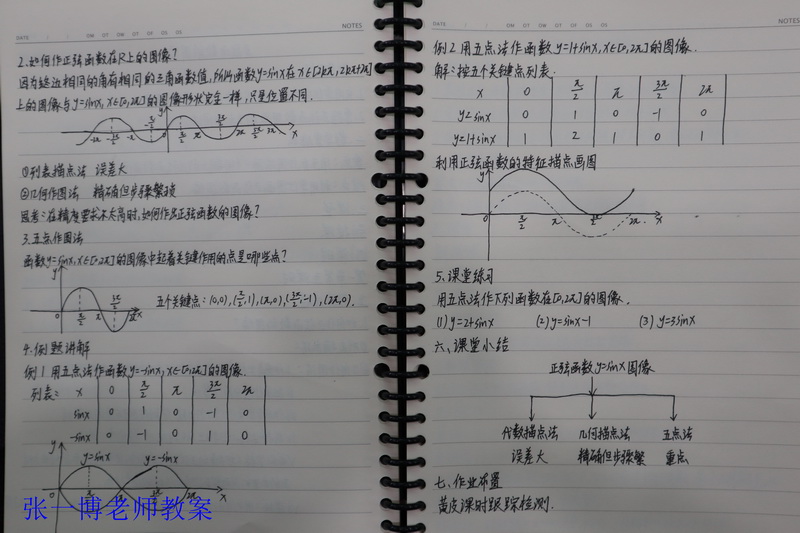 DATE
NOTES
2.如何作正弦函数在R上的图像?
因为终边相同的角有相同的三角函数值,所以函数y=sinx在x∈[2kπ,2kπ+2π]
上的图像与y=sinx,x∈[0,2π]的图像形状完全一样,只是位置不同.
①列表描点法 误差大
②几何作图法 精确但步骤繁琐
思考:在精度要求不太高时,如何作出正弦函数的图像?
3.五点作图法
函数y=sinx,x∈[0,2π]的图像中起着关键作用的点是哪些点?
五个关键点:(0,0),(π/2,1),(π,0),(3π/2,-1),(2π,0).
4.例题讲解
例1 用五点法作函数y=-sinx,x∈[0,2π]的图像.
列表: x 0 π/2 π 3π/2 2π
sinx 0 1 0 -1 0
-sinx 0 -1 0 1 0
y=sinx y=-sinx
张一博老师教案
NOTES
例2 用五点法作函数y=1+sinx,x∈[0,2π]的图像.
解:按五个关键点列表.
x 0 π/2 π 3π/2 2π
y=sinx 0 1 0 -1 0
y=1+sinx 1 2 1 0 1
利用正弦函数的特征描点画图
5.课堂练习
用五点法作下列函数在[0,2π]的图像.
(1) y=2+sinx (2) y=sinx-1 (3) y=3sinx
六、课堂小结
正弦函数y=sinx图像
代数描点法 几何描点法 五点法
误差大 精确但步骤繁 重点
七、作业布置
黄皮课时跟踪检测.